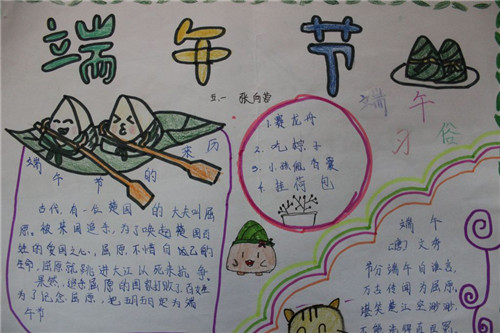 端午节
五.一 张向蓉
端午节的来历
古代,有一位楚国的大夫叫屈
原。被某国追杀,为了唤起楚国百
姓的爱国之心,屈原不惜自己的
生命,屈原就跳进大江以死来抗争。
果然,楚
为了记念屈原,把五月五日定为端
午节
1.赛龙舟
2.吃粽子
3.小孩佩香囊
4.挂荷包
端午
习俗
端午
(唐)文秀
节分端午自谁言,
万古传闻为屈原,
堪笑楚江空渺渺,
不能洗得直臣冤